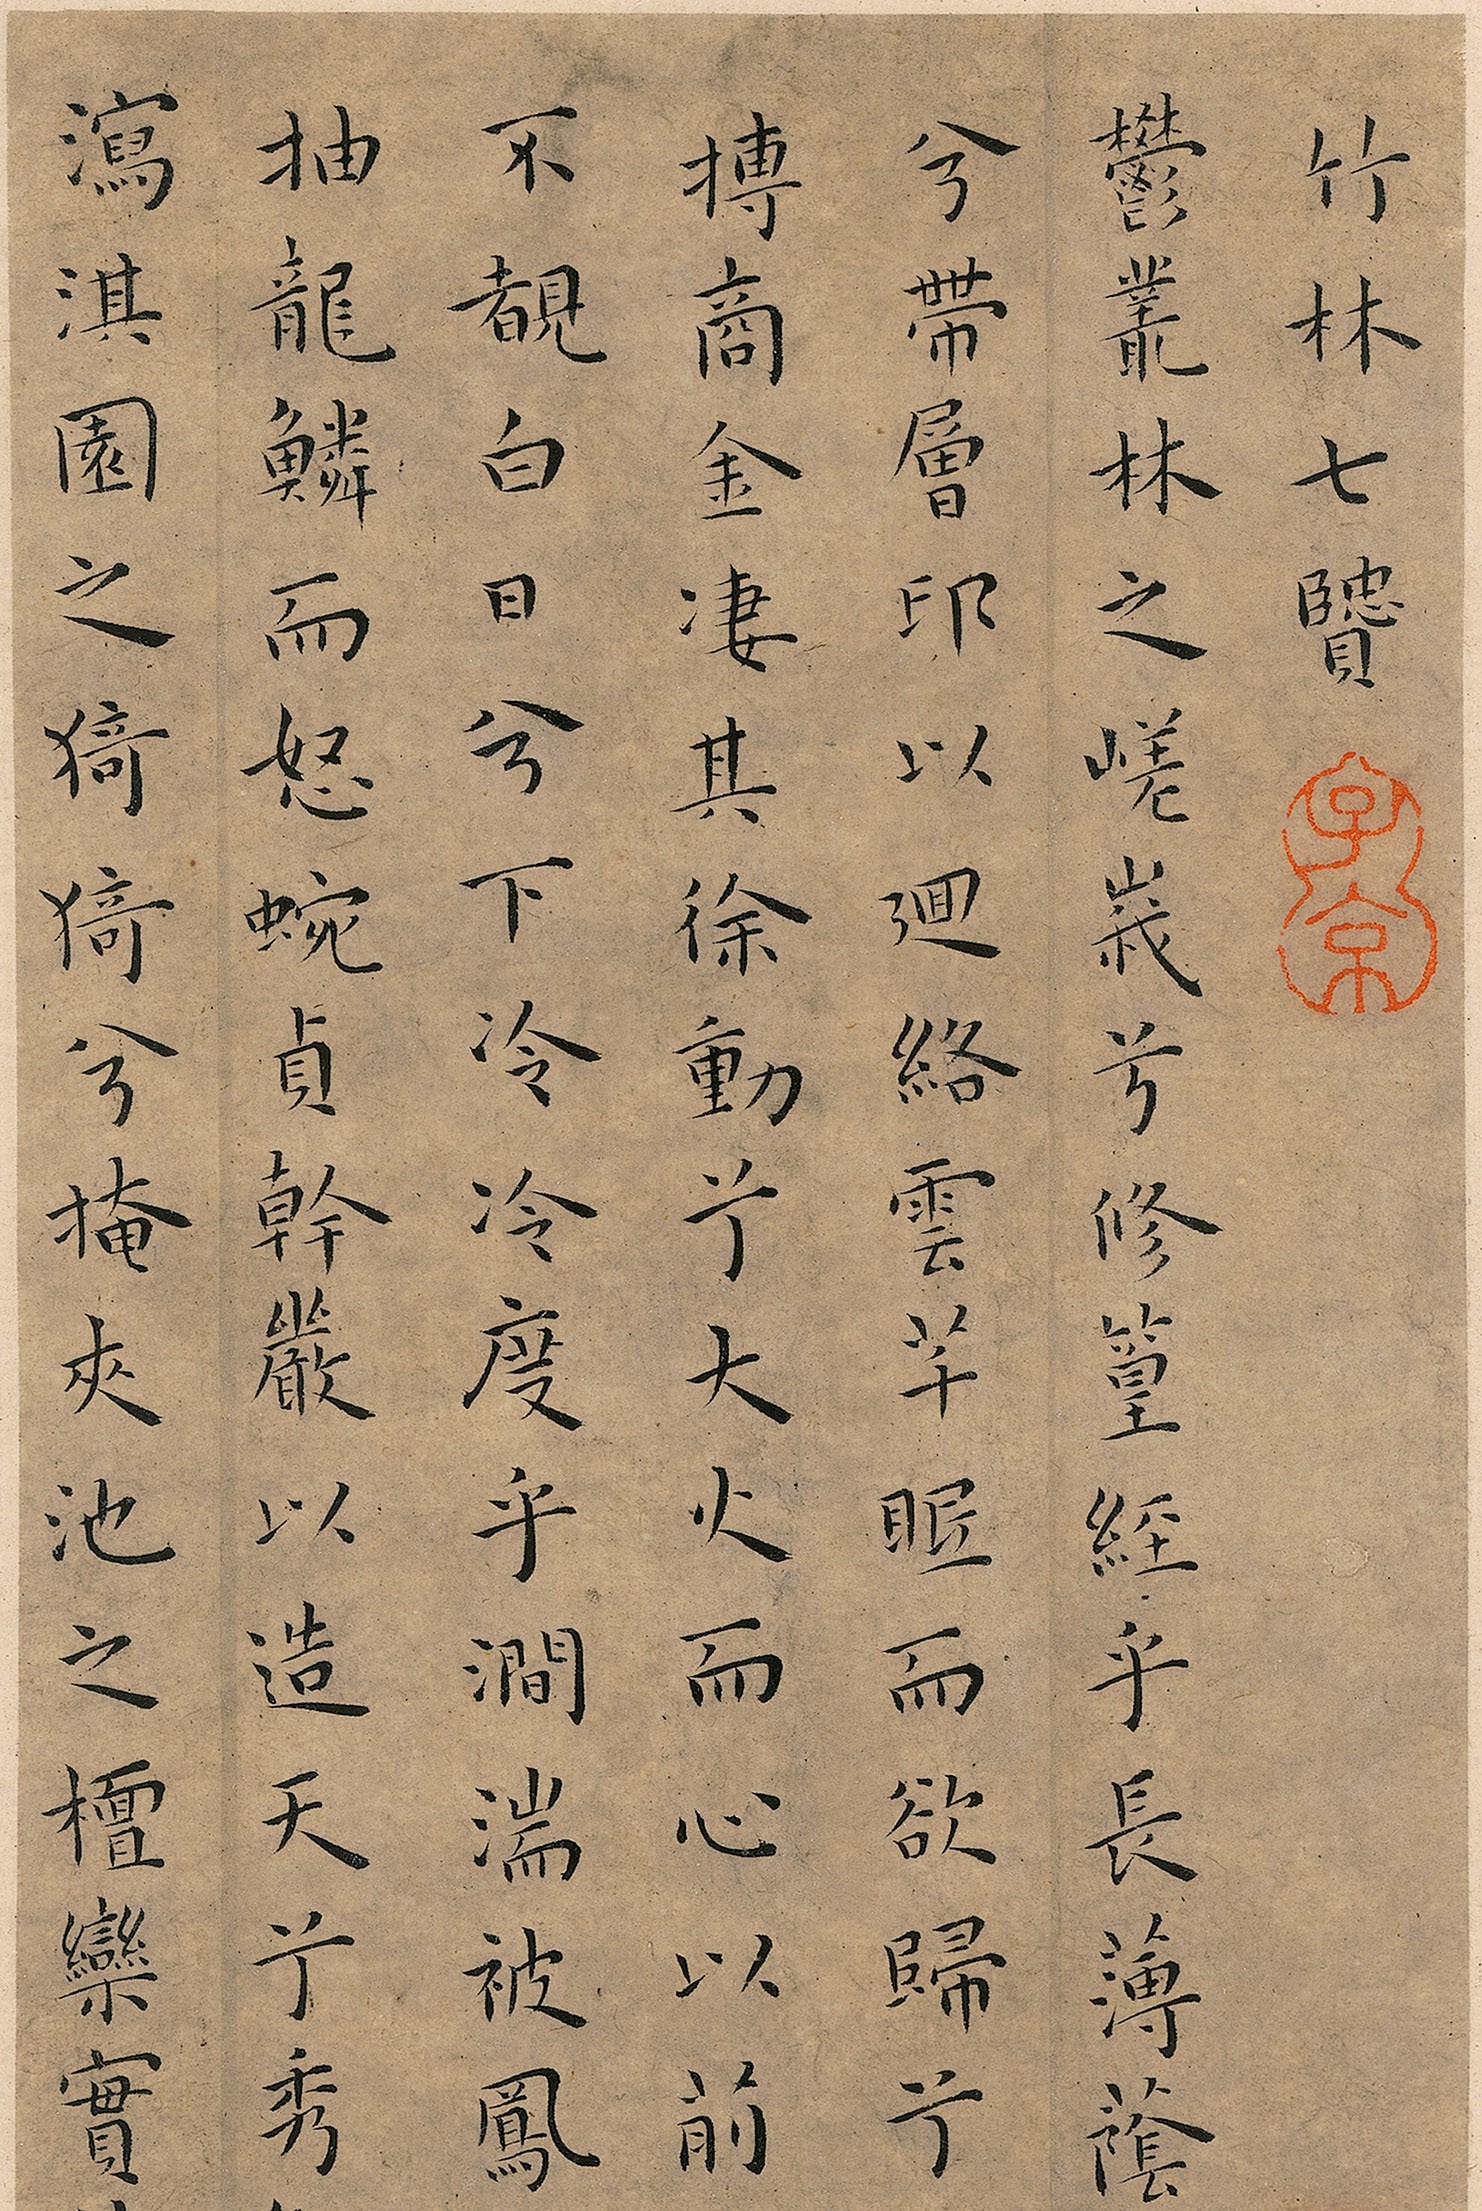 竹林七賢
子京
鬱叢林之嵯峩兮修篁經乎長薄蔭
兮帶層卬以迴絡雲芊眠而欲歸兮
摶商金凄其徐動兮大火而心以前
不覩白日兮下冷冷度乎澗湍被鳳
抽龍鱗而怒蜿貞幹巖以造天兮秀
瀉淇園之猗猗兮掩夾池之檀欒實